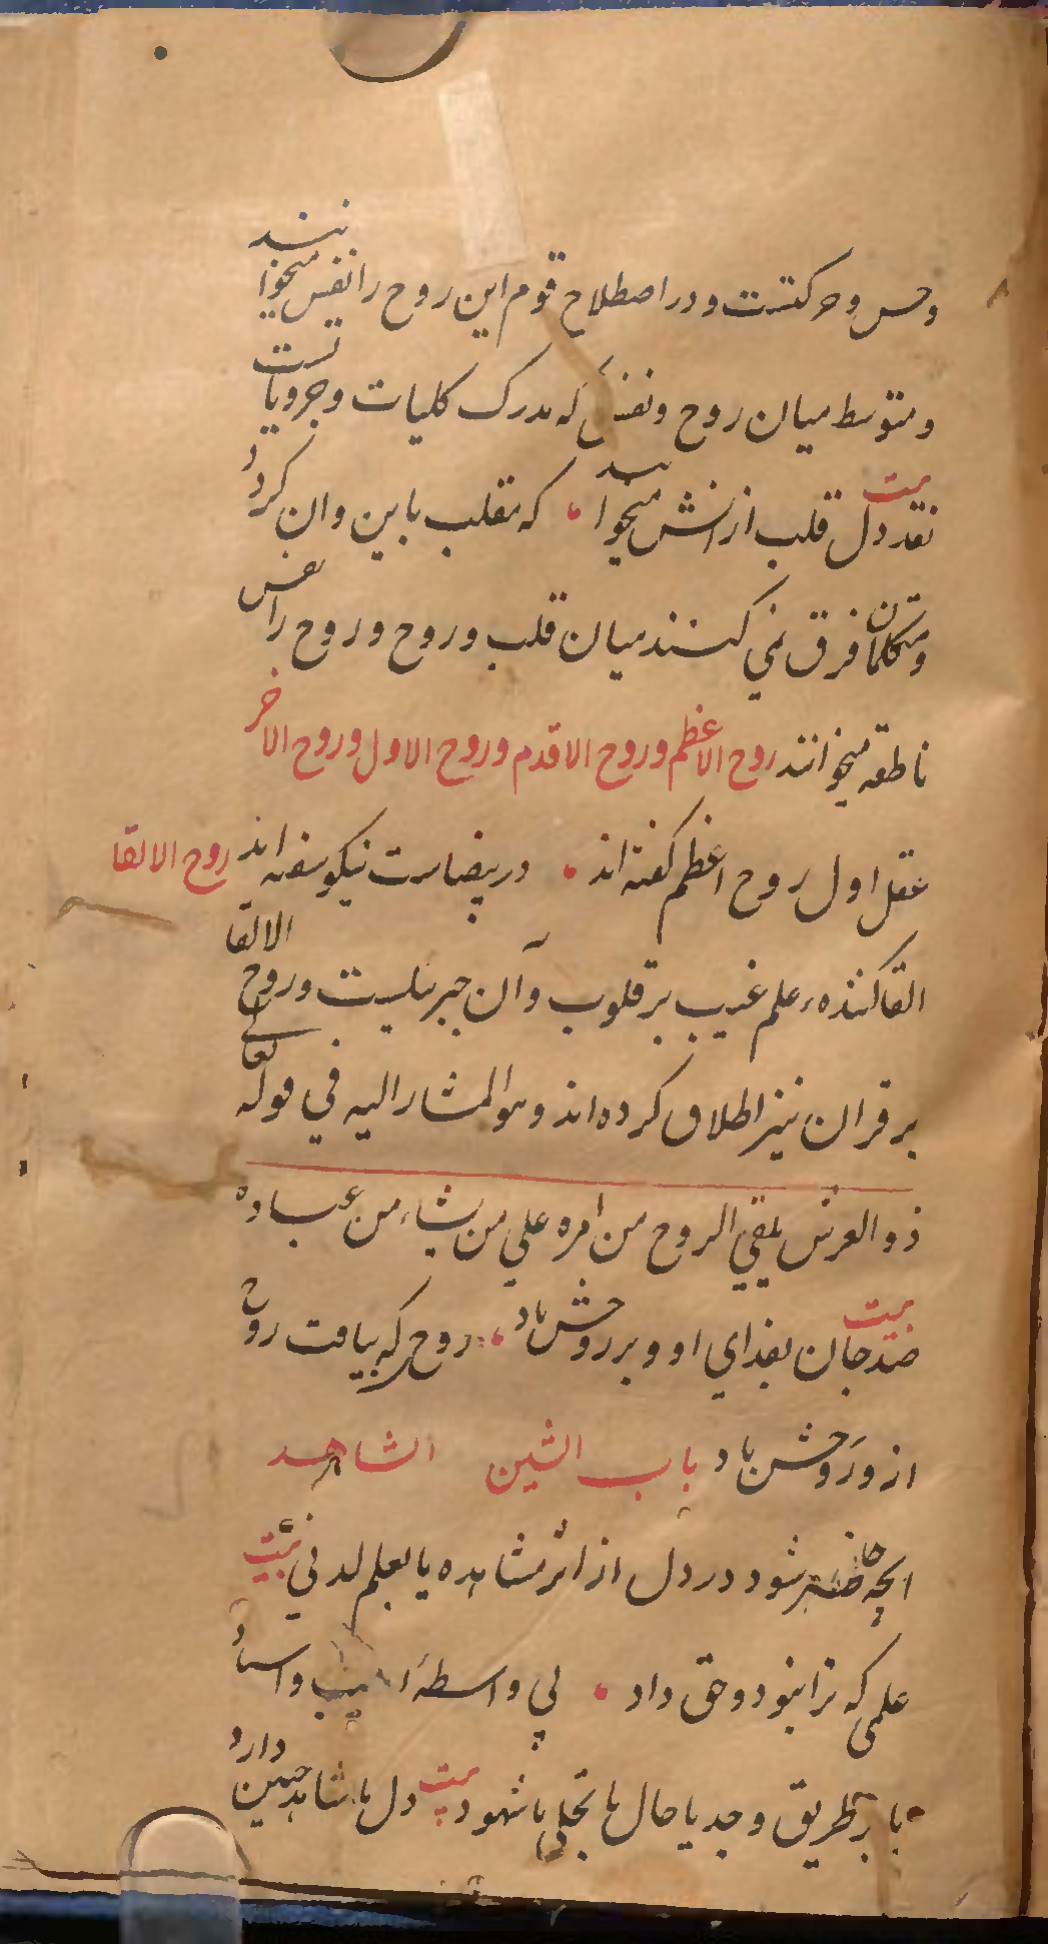 وحس وحرکتست ودر اصطلاح قوم این روح را نفس میخوانند
ومتوسط میان روح ونفس که مدرک کلیات وجزویاتست
نقد دل قلب ازانش میخوانند بیت که مقلب باین وان کردد
ومتکلمان فرق نمی کنند میان قلب وروح وروح را نفس
ناطقه میخوانند روح الاعظم وروح الاقدم وروح الاول وروح الاخر
عقل اول روح اعظم کفته اند دربیضاست نیکو سفته اند روح الالقا
القا کننده علم غیب بر قلوب وآن جبریلست وروح الالقا
بر قران نیز اطلاق کرده اند وهو المشار الیه في قوله تعالی
ذو العرش یلقي الروح من امره علي من یشاء من عباده
بیت صد جان بفدای او وبر روحش باد روح که بیافت روح
از وروحش باد باب الشین الشاهد
انچه حاضر شود در دل از اثر مشاهده یا بعلم لدني بیت
علمی که ترا بنود وحق داد بي واسطهٔ ادیب واستاد
یا بر طریق وجد یا حال یا تجلی یا شهود بیت دل با شاهد چنین دارد